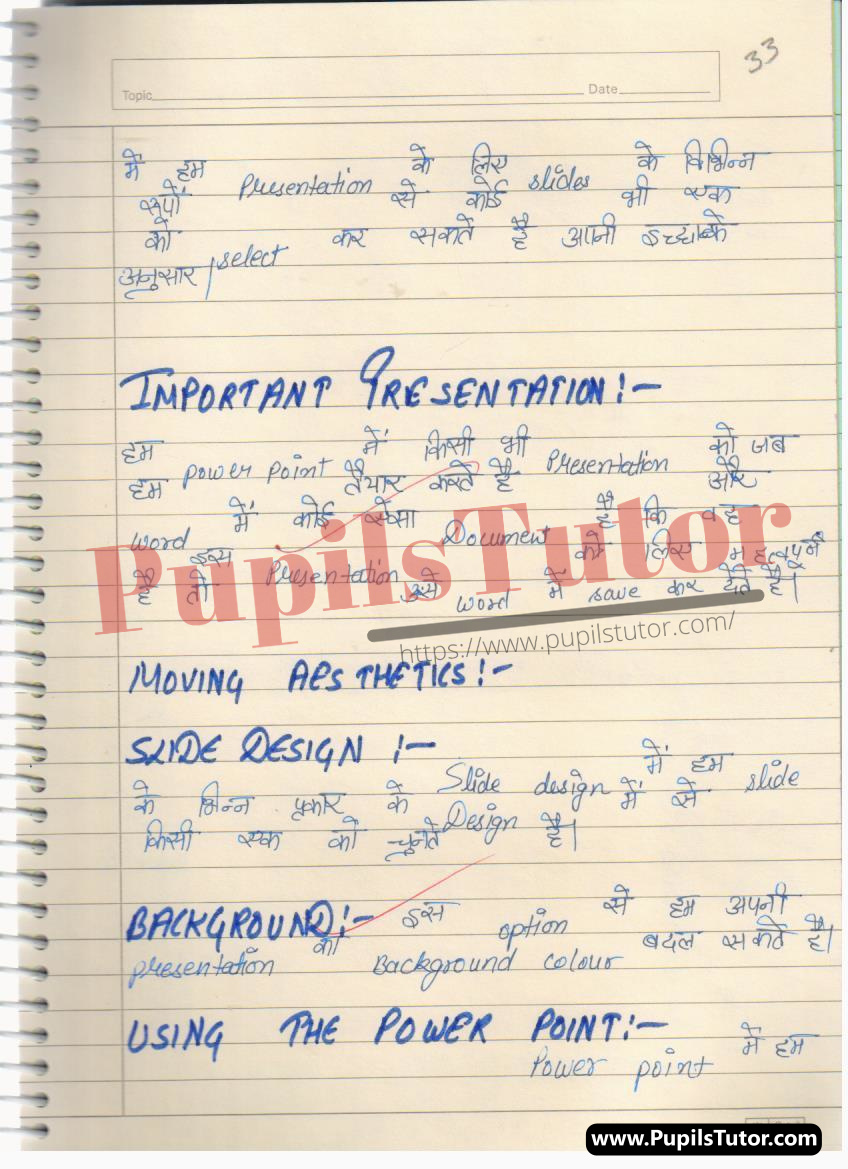 33
Topic Date
में हम Presentation के लिए slides के विभिन्न
रूपों से कोई भी एक
को select कर सकते है अपनी इच्छा के
अनुसार |
IMPORTANT PRESENTATION:-
हम power point में किसी भी Presentation को जब
हम तैयार करते है और
word में कोई ऐसा Document है कि वह
इस Presentation के लिए महत्वपूर्ण
है तो उसे word में save कर देते है।
PupilsTutor
https://www.pupilstutor.com/
MOVING AESTHETICS:-
SLIDE DESIGN :-
Slide design में हम slide
के भिन्न प्रकार के Design में से
किसी एक को चुनते है।
BACKGROUND:- इस option से हम अपनी
presentation का Background colour बदल सकते है।
USING THE POWER POINT:-
Power point में हम
www.PupilsTutor.com